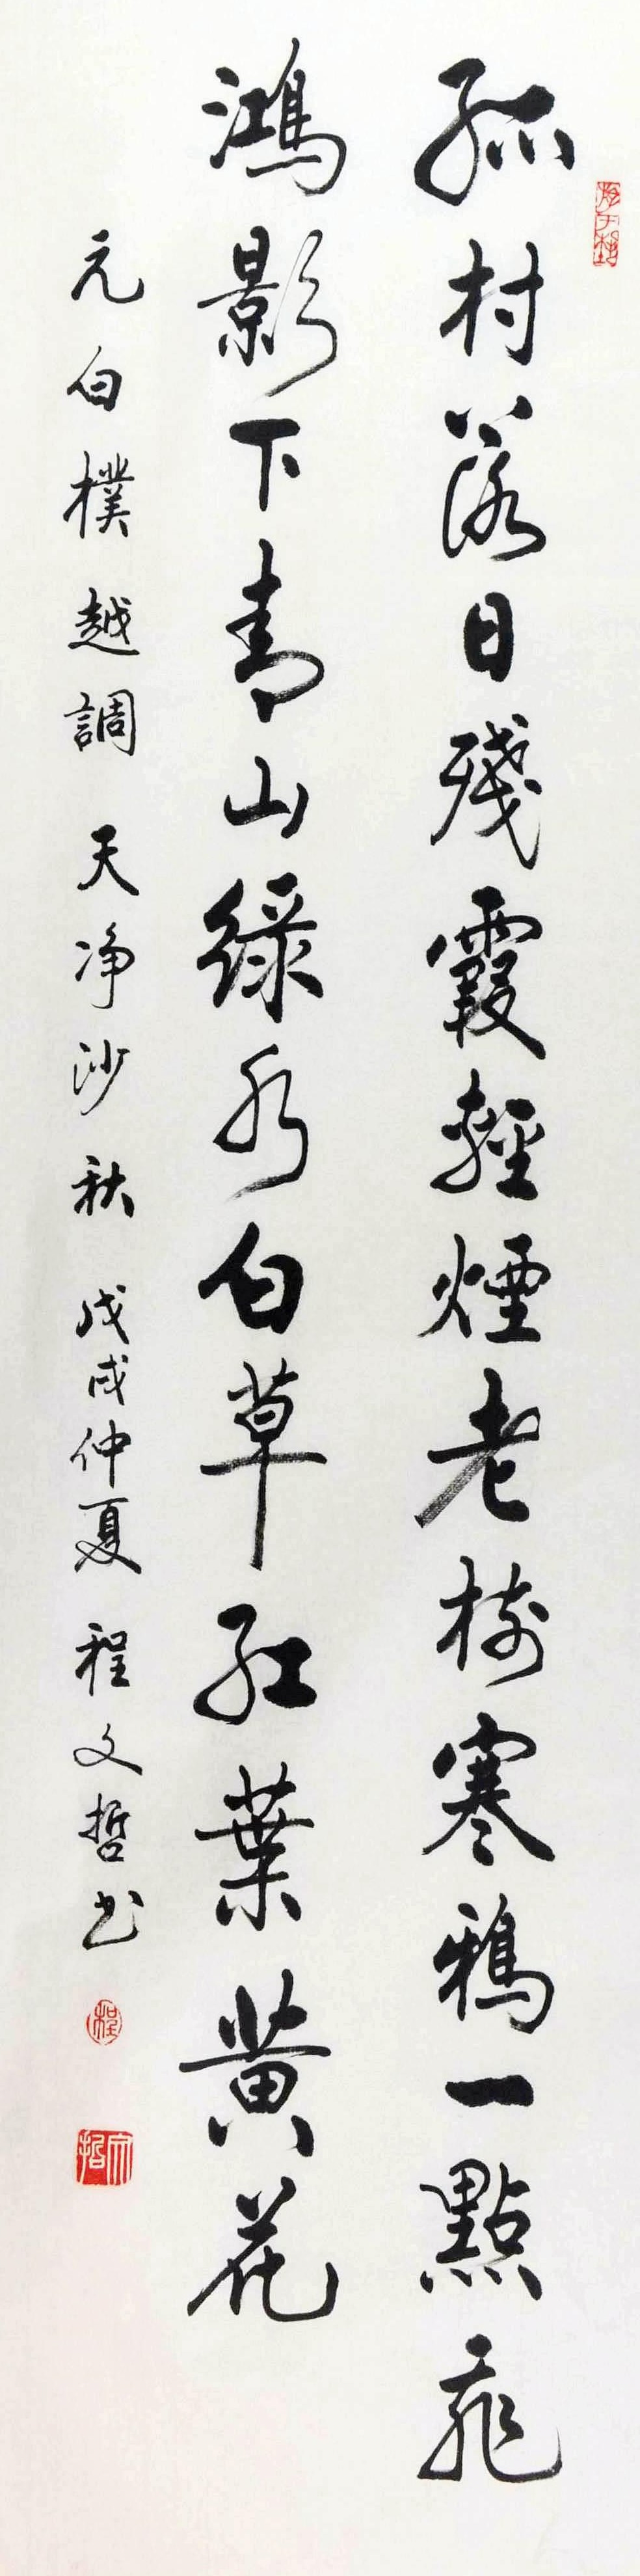 孤村落日殘霞輕煙老樹寒鴉一點飛
鴻影下青山綠水白草紅葉黃花
元白樸越調 天净沙秋 戊戌仲夏 程文哲书
程
文哲